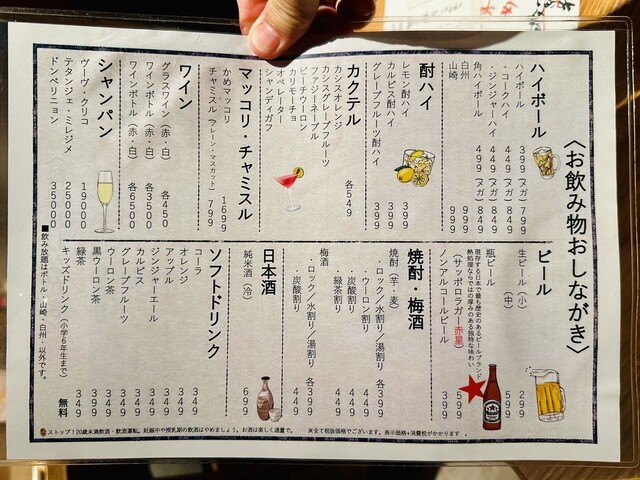 〈お飲み物おしながき〉
ハイボール
ハイボール 399 (メガ) 799
・コークハイ 449 (メガ) 849
・ジンジャーハイ 449 (メガ) 849
角ハイボール 499 (メガ) 949
白州 999
山崎 999
酎ハイ
レモン酎ハイ 399
カルピス酎ハイ 399
グレープフルーツ酎ハイ 399
カクテル
カシスオレンジ
カシスグレープフルーツ
ファジーネーブル
ピーチウーロン
カリモーチョ
オペレーター
シャンディガフ
各549
マッコリ・チャミスル
かめマッコリ 1699
チャミスル (プレーン・マスカット) 799
ワイン
グラスワイン (赤・白) 各450
ワインボトル (赤・白) 各3500
ワインボトル (赤・白) 各6500
シャンパン
ヴーヴ・クリコ 19000
テタンジェ・ミレジメ 25000
ドンペリニョン 35000
ビール
生ビール (小) 299
(中) 599
瓶ビール
現存する日本で最も歴史のあるビールブランド
熱処理ならではの厚みのある独特な味わい
(サッポロラガー赤星) 599
ノンアルコールビール 399
焼酎・梅酒
焼酎 (芋・麦)
・ロック/水割り/湯割り 各399
・ウーロン割り 449
・炭酸割り 449
・緑茶割り 449
梅酒
・ロック/水割り/湯割り 各399
・炭酸割り 449
日本酒
純米酒 (冷) 699
ソフトドリンク
コーラ 349
オレンジ 349
アップル 349
ジンジャーエール 349
カルピス 349
グレープフルーツ 349
ウーロン茶 349
黒ウーロン茶 449
緑茶 349
キッズドリンク (小学6年生まで) 無料
■飲み放題はボトル・山崎・白州・以外です。
ストップ!20歳未満飲酒・飲酒運転。妊娠中や授乳期の飲酒はやめましょう。お酒は楽しく適量で。
※全て税抜価格でございます。表示価格+消費税がかかります。